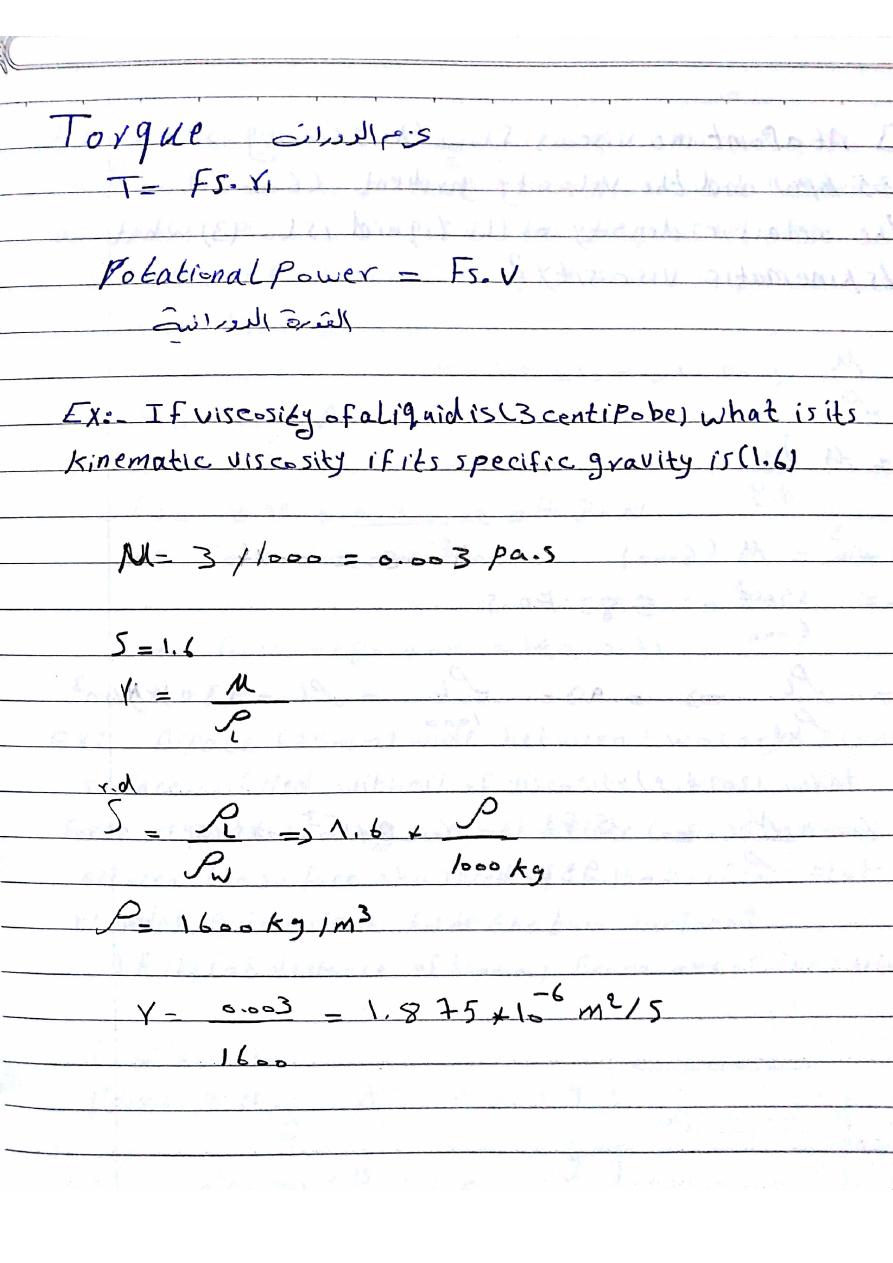 Torque عزم الدوران
T= Fs. r₁
Rotational Power = Fs. V
القدرة الدورانية
Ex:- If viscosity of a Liquid is (3 centipobe) what is its
kinematic viscosity if its specific gravity is (1.6)
M= 3 / 1000 = 0.003 pa.s
S = 1.6
γ = M / ρL
r.d
S = ρL / ρw => 1.6 * ρ / 1000 kg
ρ= 1600 kg/m³
γ = 0.003 / 1600 = 1.875 * 10⁻⁶ m²/s